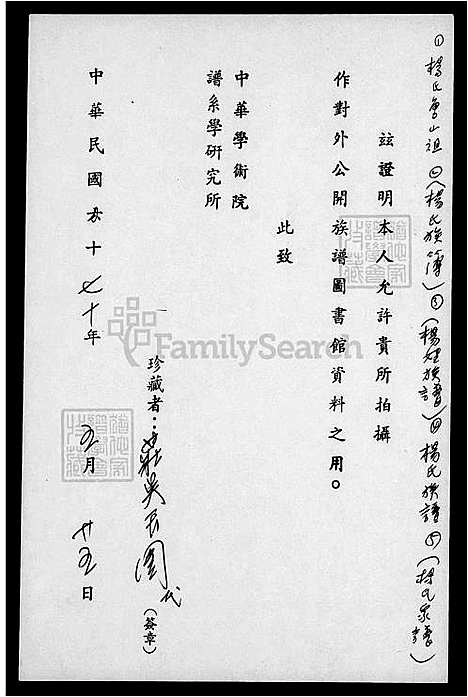 ① 楊氏魯山祖 ②(楊氏族簿) ③(楊姓族譜) ④ 楊氏族譜 ⑤(楊氏家譜)
玆證明本人允許貴所拍攝
作對外公開族譜圖書館資料之用。
此致
中華學術院
譜系學研究所
珍藏者：莊吳 (簽章)
中華民國 十 七十年 五月 廿五日
FamilySearch